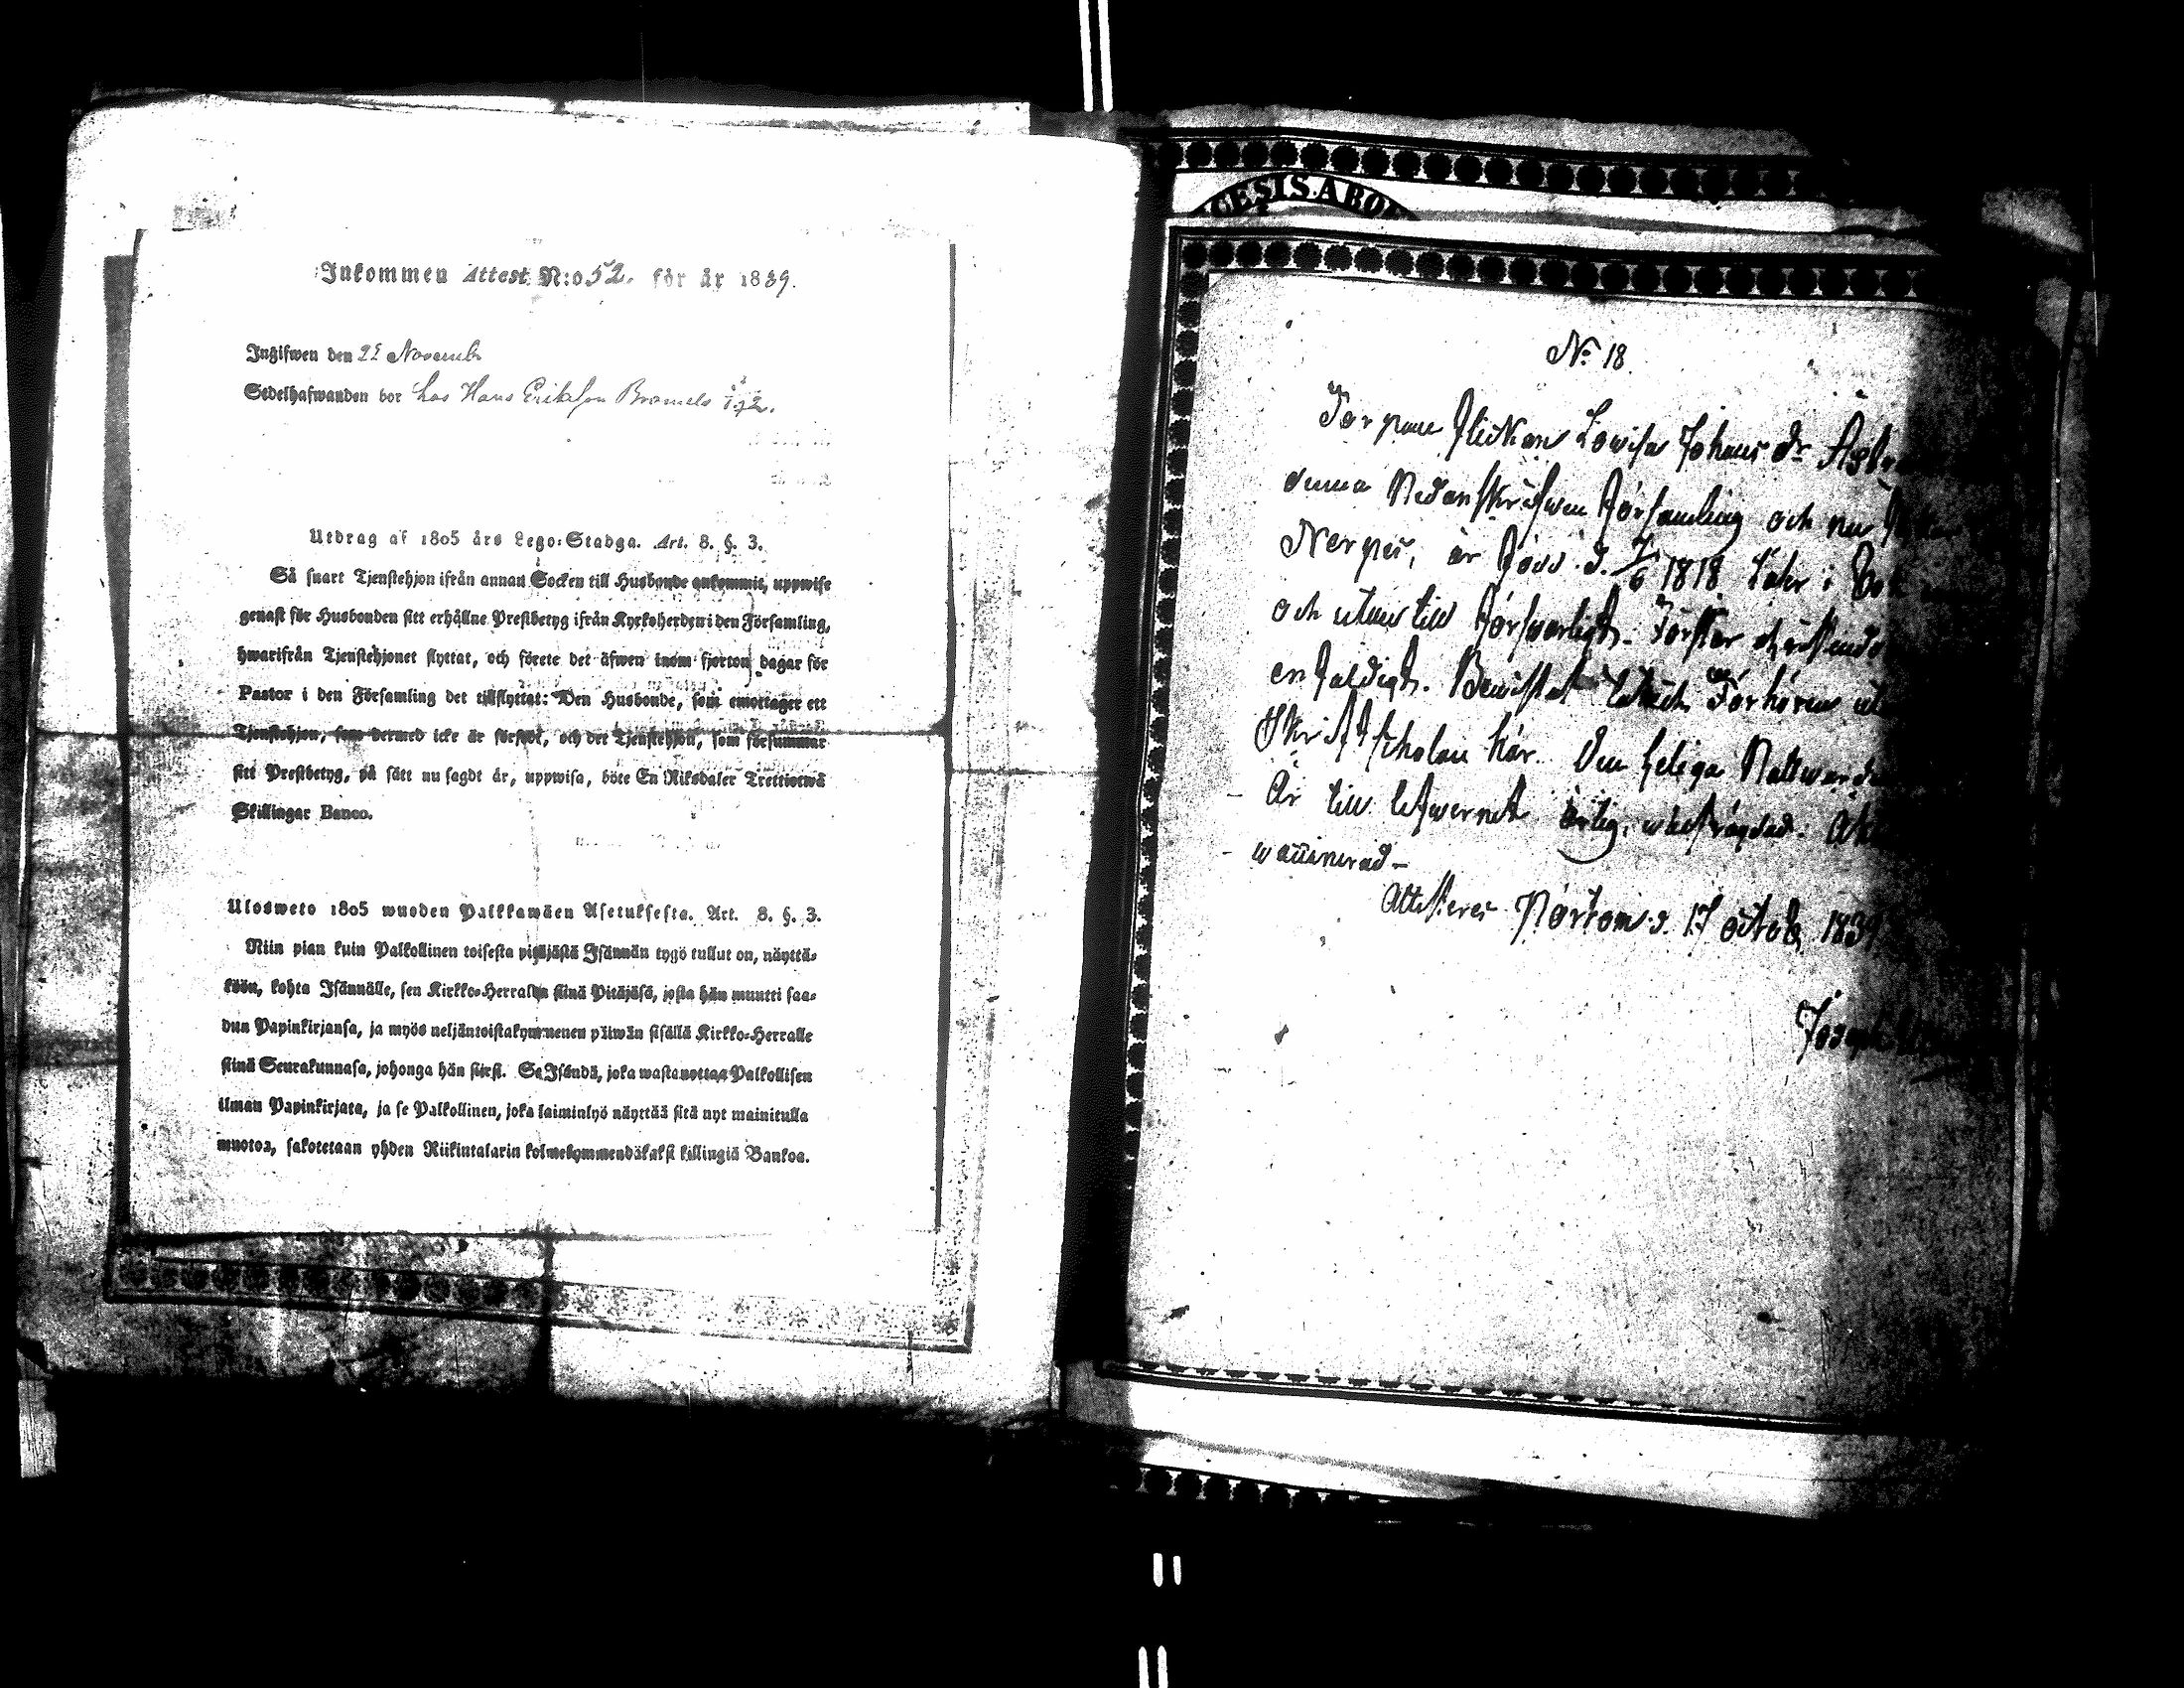 Inkommen Attest N:o 52. för år 1839.
Ingifwen den 22 Novemb
Sedelhafwanden bor hos Hans Erikson Bramels
Utdrag af 1805 års Lego-Stadga. Art. 8. §. 3.
Så snart Tjenstehjon ifrån annan Socken till Husbonde ankommit, uppwise
genast för Husbonden sitt erhållne Prestbetyg ifrån Kyrkoherden i den Församling,
hwarifrån Tjenstehjonet flyttat, och förete det äfwen inom fjorton dagar för
Pastor i den Församling det tillflyttat: Den Husbonde, som emottager ett
Tjenstehjon, som dermed icke är försedt, och det Tjenstehjon, som försummar
sitt Prestbetyg, på sätt nu sagdt är, uppwisa, böte En Riksdaler Trettiotwå
Skillingar Banco.
Ulosweto 1805 wuoden Palkkawäen Asetuksesta. Art. 8. §. 3.
Niin pian kuin Palkollinen toisesta pitäjästä Isännän tygö tullut on, näyttä-
köön, kohta Isännälle, sen Kirkko-Herralda siinä Pitäjäsä, josta hän muutti saa-
dun Papinkirjansa, ja myös neljäntoistakymmenen päiwän sisällä Kirkko-Herralle
siinä Seurakunnasa, johonga hän siirsi. Se Isändä, joka wastanottaa Palkollisen
ilman Papinkirjata, ja se Palkollinen, joka laiminlyö näyttää sitä nyt mainitulla
muotoa, sakotetaan yhden Riikintalarin kolmekymmendäkaksi killingiä Bankoa.
CESIS.ABOE
No 18.
Torpare flickan Lovisa Johans dr
denna Nedanskrefwen Församling och nu
Nerpes, är född d. 7/6 1818 Läser i Bok
och utantill försvarligt. Förstår
enfaldigt. Bewistat Förhören
Skriftskolan här. Den heliga Nattwarden
Är till lefwernet ärlig, obefrägdad.
- waccinerad -
Attesteras Nörtom d. 17 octob 1839
Joseph